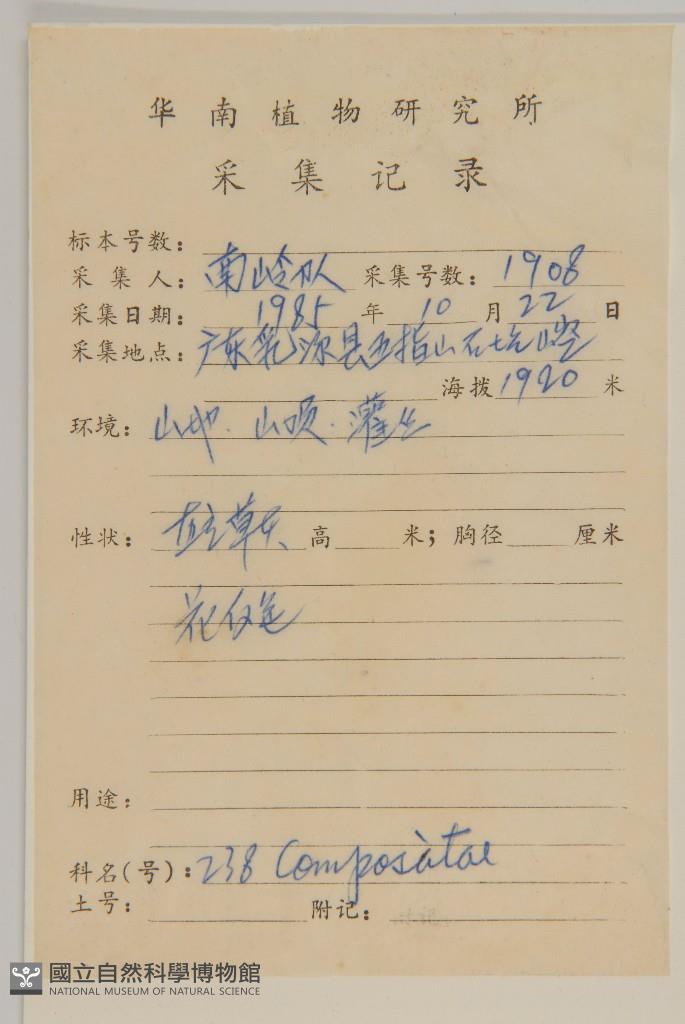 华南植物研究所
采集记录
标本号数:
采集人: 南岭队 采集号数: 1908
采集日期: 1985 年 10 月 22 日
采集地点: 广东乳源县五指山石坑崆
海拨 1920 米
环境: 山地. 山顶. 灌丛
性状: 直立草本 高 米; 胸径 厘米
花
用途:
科名(号): 238 Compositae
土号: 附记:
國立自然科學博物館
NATIONAL MUSEUM OF NATURAL SCIENCE